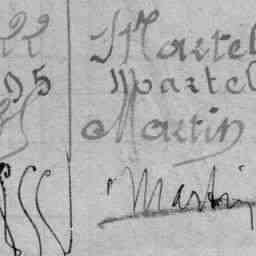 22 Martel
95 Martel
Martin
Martin